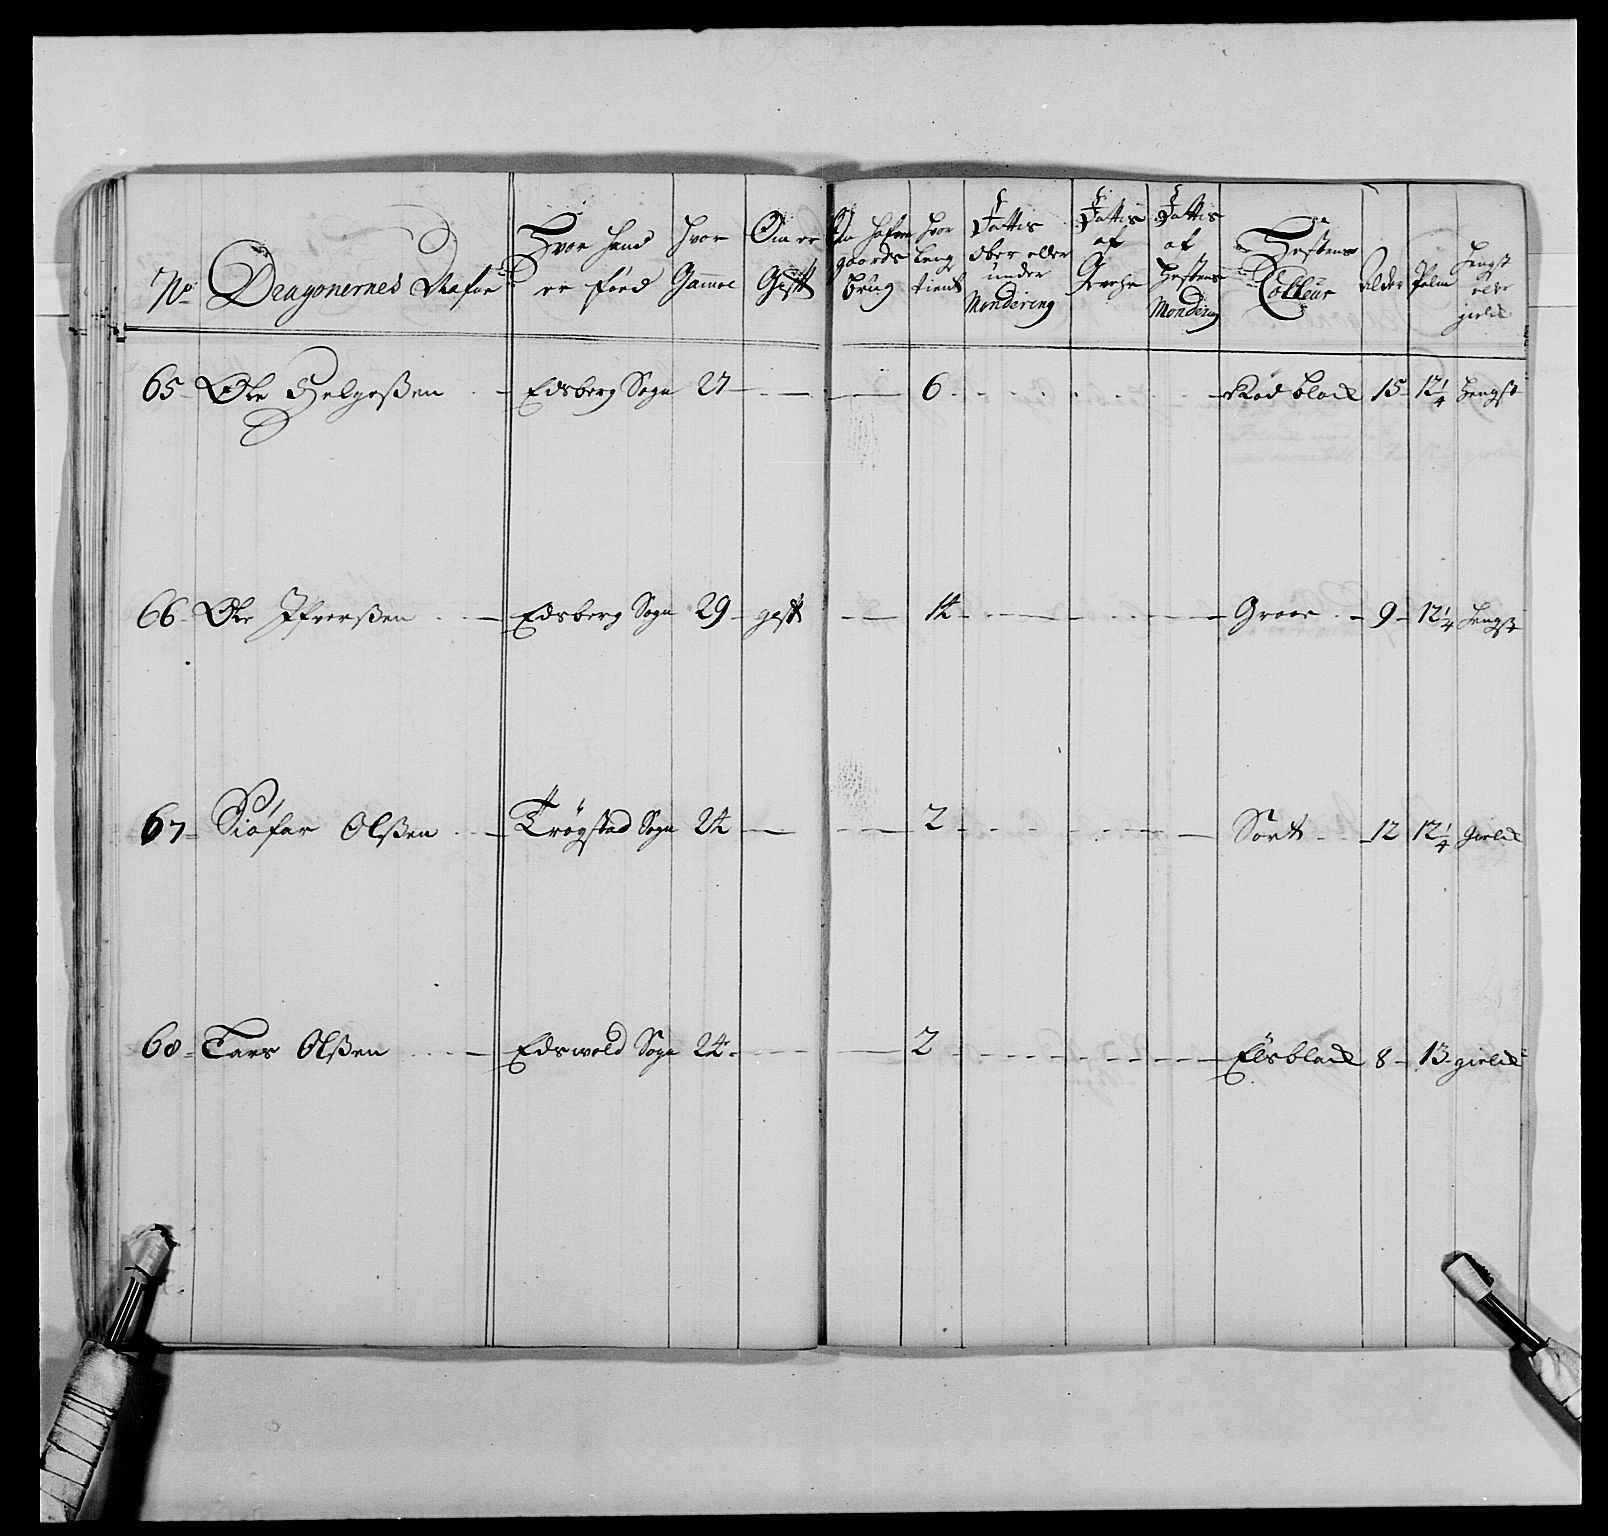 No Dragonernes Nafne Hvor hand er föed Hvor Gammel Om er Gifft Om hafver gaards brug Hvor leng tient Fattis ober eller under Mondering Fattis af Gevehr Fattis af Hestens Mondering Hestens Colleur Alder Palm Hengst eller gield
65 Ole Helgeßen Edsberg Sogn 27 6 Röd black 15 12 1/4 Hengst
66 Ole Ifverßen Edsberg Sogn 29 gifft 14 Graae 9 12 1/4 Hengst
67 Siöfar Olßen Trögstad Sogn 24 2 Sort 12 12 1/4 Gield
68 Lars Olßen Edswold Sogn 24 2 Elsblack 8 13 gield